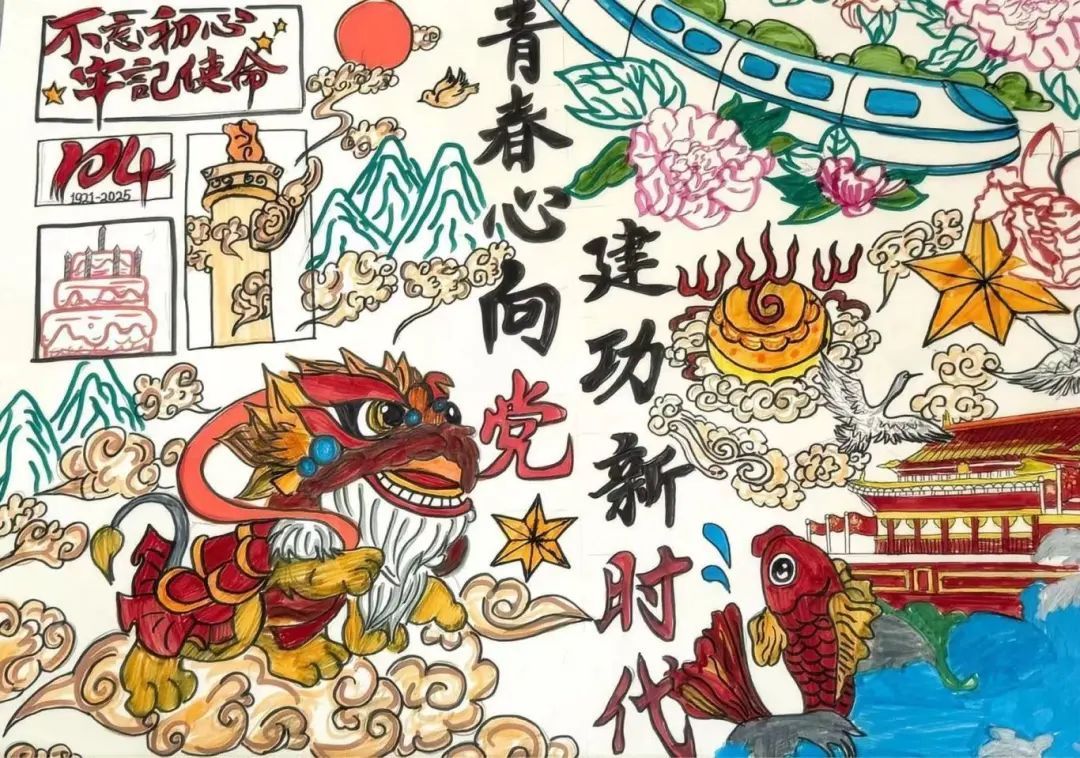 不忘初心
牢記使命
104
1921-2025
青春心向党
建功新时代